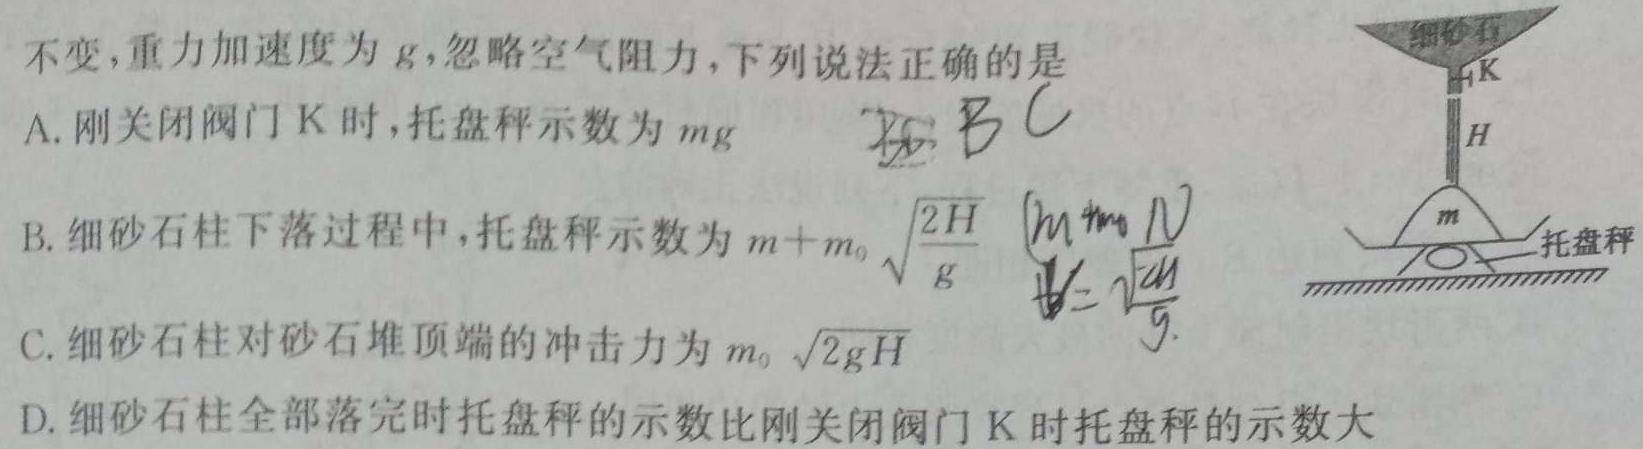 不变,重力加速度为 g,忽略空气阻力,下列说法正确的是
A. 刚关闭阀门 K 时,托盘秤示数为 mg
B C
B. 细砂石柱下落过程中,托盘秤示数为 m+m₀√(2H/g)
(m+m₀ N)
t=√(2H/g).
C. 细砂石柱对砂石堆顶端的冲击力为 m₀√(2gH)
D. 细砂石柱全部落完时托盘秤的示数比刚关闭阀门 K 时托盘秤的示数大
细砂石
K
H
m
托盘秤